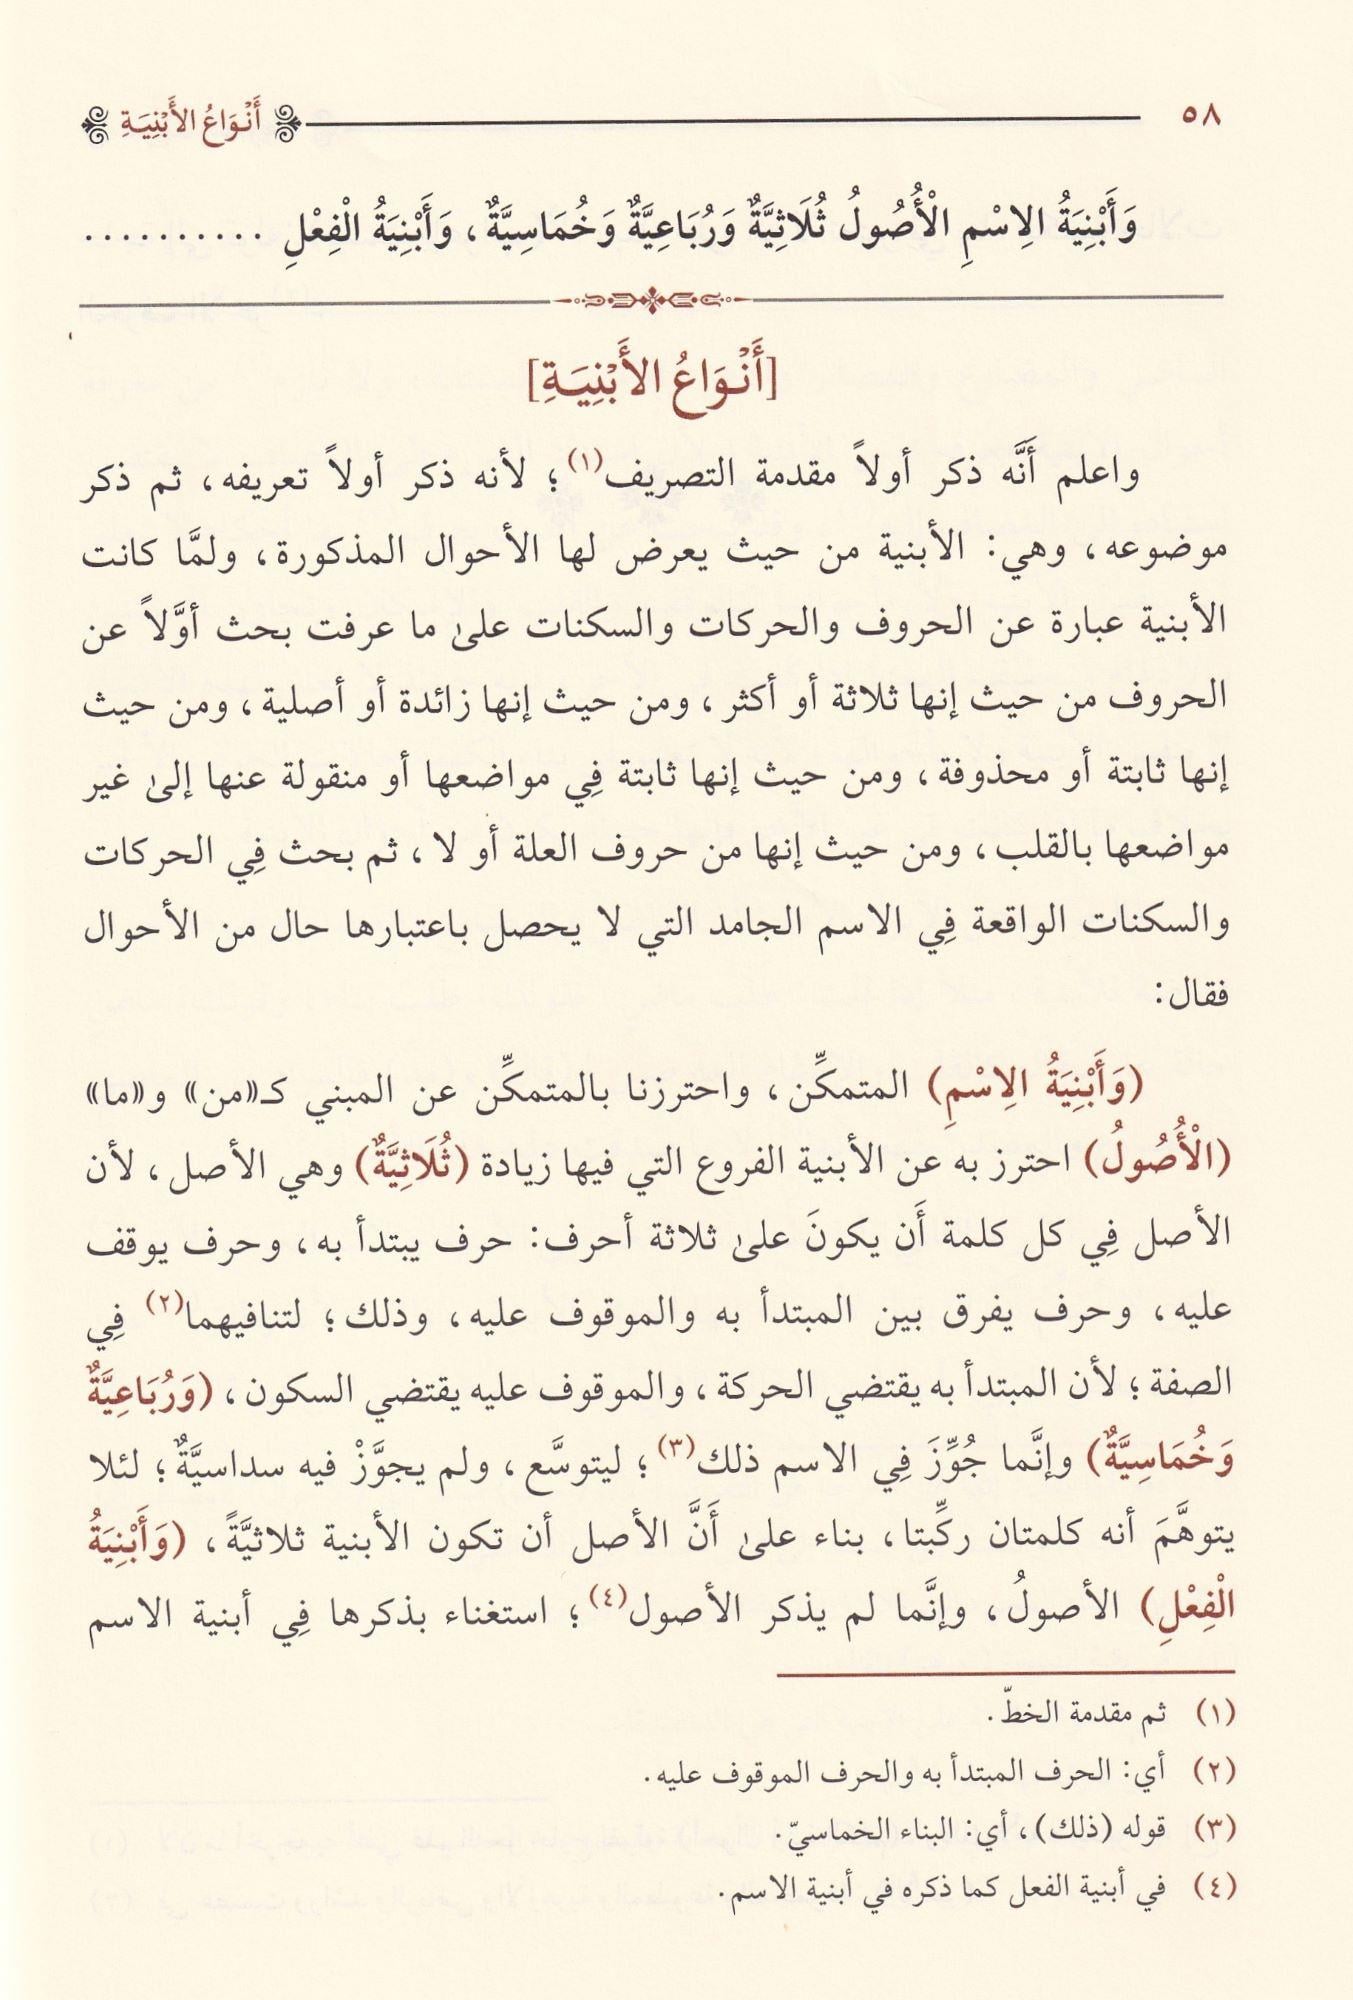 ٥٨ أَنْوَاعُ الأَبْنِيَةِ
وَأَبْنِيَةُ الِاسْمِ الْأُصُولُ ثُلَاثِيَّةٌ وَرُبَاعِيَّةٌ وَخُمَاسِيَّةٌ، وَأَبْنِيَةُ الْفِعْلِ ..........
[أَنْوَاعُ الأَبْنِيَةِ]
واعلم أَنَّه ذكر أولاً مقدمة التصريف(١)؛ لأنه ذكر أولاً تعريفه، ثم ذكر
موضوعه، وهي: الأبنية من حيث يعرض لها الأحوال المذكورة، ولمَّا كانت
الأبنية عبارة عن الحروف والحركات والسكنات علىٰ ما عرفت بحث أوَّلاً عن
الحروف من حيث إنها ثلاثة أو أكثر، ومن حيث إنها زائدة أو أصلية، ومن حيث
إنها ثابتة أو محذوفة، ومن حيث إنها ثابتة فِي مواضعها أو منقولة عنها إلىٰ غير
مواضعها بالقلب، ومن حيث إنها من حروف العلة أو لا، ثم بحث فِي الحركات
والسكنات الواقعة فِي الاسم الجامد التي لا يحصل باعتبارها حال من الأحوال
فقال:
(وَأَبْنِيَةُ الِاسْمِ) المتمكِّن، واحترزنا بالمتمكِّن عن المبني كـ«من» و«ما»
(الْأُصُولُ) احترز به عن الأبنية الفروع التي فيها زيادة (ثُلَاثِيَّةٌ) وهي الأصل، لأن
الأصل فِي كل كلمة أَن يكونَ علىٰ ثلاثة أحرف: حرف يبتدأ به، وحرف يوقف
عليه، وحرف يفرق بين المبتدأ به والموقوف عليه، وذلك؛ لتنافيهما(٢) فِي
الصفة؛ لأن المبتدأ به يقتضي الحركة، والموقوف عليه يقتضي السكون، (وَرُبَاعِيَّةٌ
وَخُمَاسِيَّةٌ) وإنَّما جُوِّزَ فِي الاسم ذلك(٣)؛ ليتوسَّع، ولم يجوَّزْ فيه سداسيَّةٌ؛ لئلا
يتوهَّمَ أنه كلمتان ركِّبتا، بناء علىٰ أَنَّ الأصل أن تكون الأبنية ثلاثيَّةً، (وَأَبْنِيَةُ
الْفِعْلِ) الأصولُ، وإنَّما لم يذكر الأصول(٤)؛ استغناء بذكرها فِي أبنية الاسم
(١) ثم مقدمة الخطّ.
(٢) أي: الحرف المبتدأ به والحرف الموقوف عليه.
(٣) قوله (ذلك)، أي: البناء الخماسيّ.
(٤) في أبنية الفعل كما ذكره في أبنية الاسم.